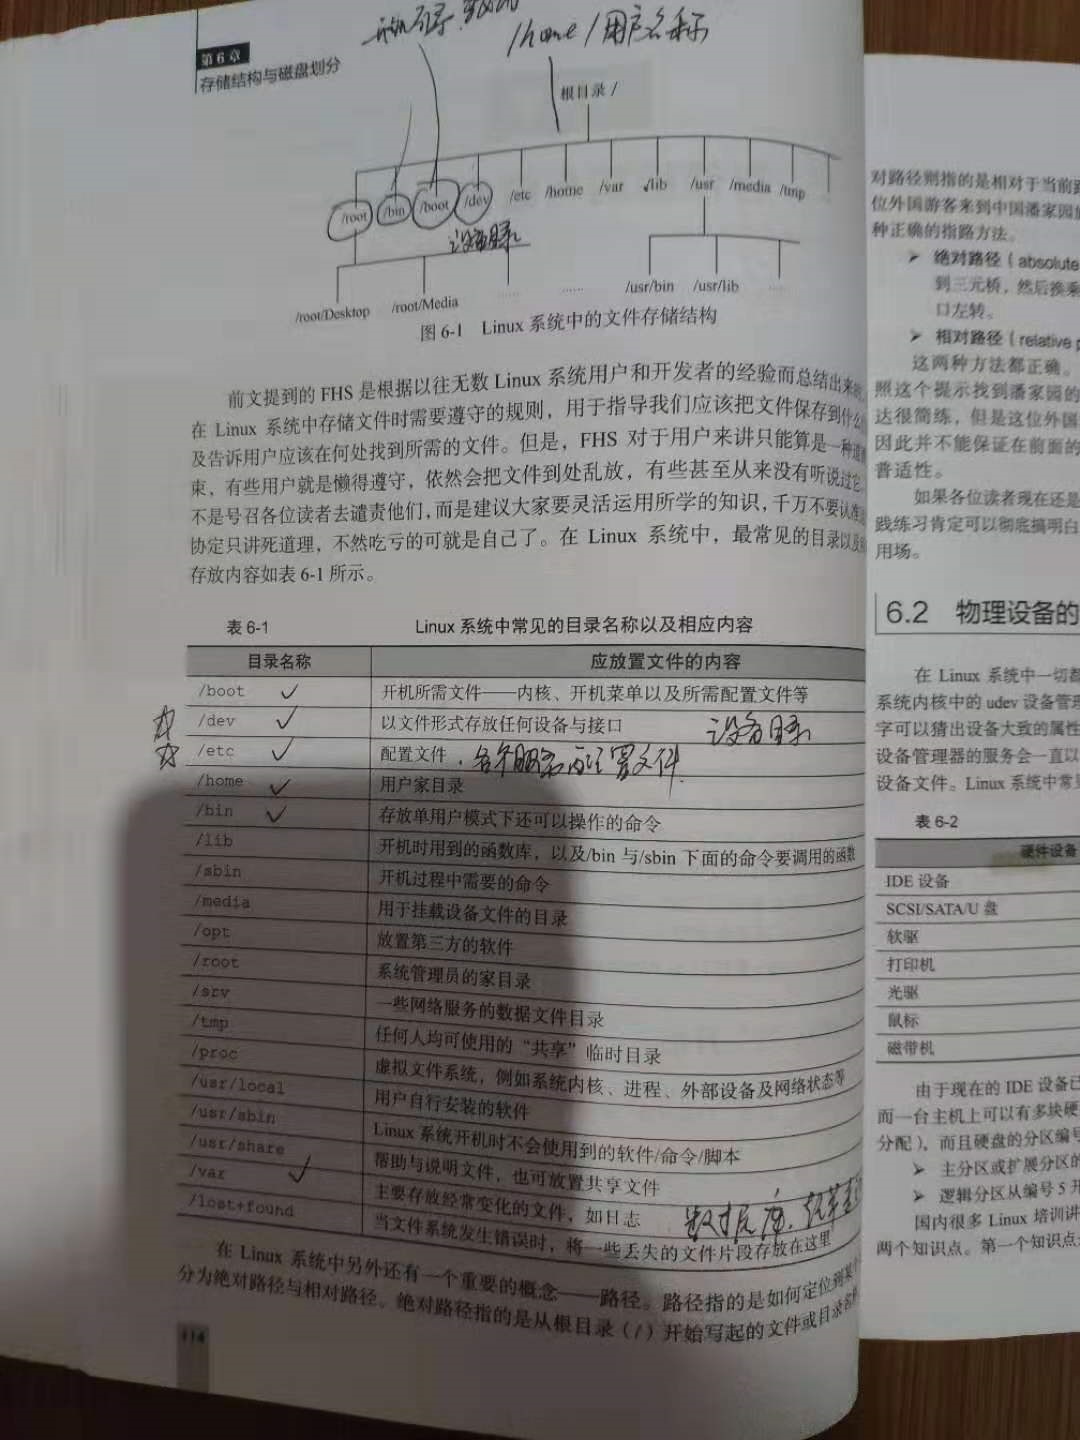 /home/用户名称
第6章
存储结构与磁盘划分
根目录 /
/root /bin /boot /dev /etc /home /var /lib /usr /media /tmp
设备目录
/root/Desktop /root/Media …… …… /usr/bin /usr/lib ……
图 6-1 Linux 系统中的文件存储结构
前文提到的 FHS 是根据以往无数 Linux 系统用户和开发者的经验而总结出来的
在 Linux 系统中存储文件时需要遵守的规则，用于指导我们应该把文件保存到什么
及告诉用户应该在何处找到所需的文件。但是，FHS 对于用户来讲只能算是一种道
束，有些用户就是懒得遵守，依然会把文件到处乱放，有些甚至从来没有听说过它
不是号召各位读者去谴责他们，而是建议大家要灵活运用所学的知识，千万不要认准
协定只讲死道理，不然吃亏的可就是自己了。在 Linux 系统中，最常见的目录以及
存放内容如表 6-1 所示。
表 6-1 Linux 系统中常见的目录名称以及相应内容
目录名称 应放置文件的内容
/boot 开机所需文件——内核、开机菜单以及所需配置文件等
/dev 以文件形式存放任何设备与接口 设备目录
/etc 配置文件 各个服务配置文件
/home 用户家目录
/bin 存放单用户模式下还可以操作的命令
/lib 开机时用到的函数库，以及/bin 与/sbin 下面的命令要调用的函数
/sbin 开机过程中需要的命令
/media 用于挂载设备文件的目录
/opt 放置第三方的软件
/root 系统管理员的家目录
/srv 一些网络服务的数据文件目录
/tmp 任何人均可使用的“共享”临时目录
/proc 虚拟文件系统，例如系统内核、进程、外部设备及网络状态等
/usr/local 用户自行安装的软件
/usr/sbin Linux 系统开机时不会使用到的软件/命令/脚本
/usr/share 帮助与说明文件，也可放置共享文件
/var 主要存放经常变化的文件，如日志 数据库
/lost+found 当文件系统发生错误时，将一些丢失的文件片段存放在这里
在 Linux 系统中另外还有一个重要的概念——路径。路径指的是如何定位到某个
分为绝对路径与相对路径。绝对路径指的是从根目录（/）开始写起的文件或目录名称
114
对路径则指的是相对于当前
位外国游客来到中国潘家园
种正确的指路方法。
➢ 绝对路径（absolute
到三元桥，然后换乘
口左转。
➢ 相对路径（relative
这两种方法都正确。
照这个提示找到潘家园的
达很简练，但是这位外国
因此并不能保证在前面的
普适性。
如果各位读者现在还是
践练习肯定可以彻底搞明白
用场。
6.2 物理设备的
在 Linux 系统中一切都
系统内核中的 udev 设备管理
字可以猜出设备大致的属性
设备管理器的服务会一直以
设备文件。Linux 系统中常
表 6-2
硬件设备
IDE 设备
SCSI/SATA/U 盘
软驱
打印机
光驱
鼠标
磁带机
由于现在的 IDE 设备已
而一台主机上可以有多块硬
分配），而且硬盘的分区编号
➢ 主分区或扩展分区的
➢ 逻辑分区从编号 5 开
国内很多 Linux 培训讲
两个知识点。第一个知识点